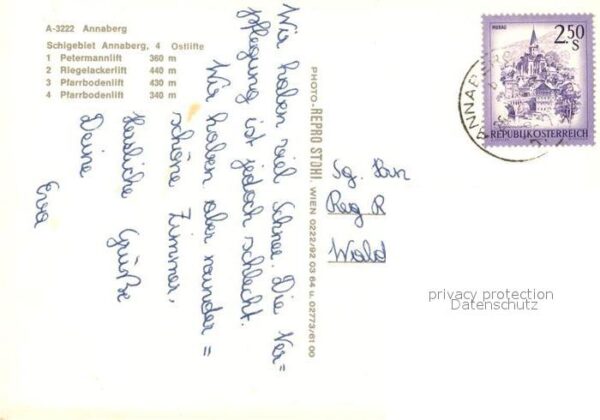 A-3222 Annaberg
Schigebiet Annaberg, 4 Ostlifte
1 Petermannlift 360 m
2 Riegelackerlift 440 m
3 Pfarrbodenlift 430 m
4 Pfarrbodenlift 340 m
Wir haben viel Schnee. Die Ver=
pflegung ist jedoch schlecht.
Wir haben aber wunder=
schöne Zimmer.
Herzliche Grüße
Deine
Eva
PHOTO-REPRO STÖHI, WIEN 0222/92 03 64 u. 02773/61 00
MURAU
2.50
S
REPUBLIK ÖSTERREICH
ANNAB
Sg.
Reg R
Wald
privacy protection
Datenschutz